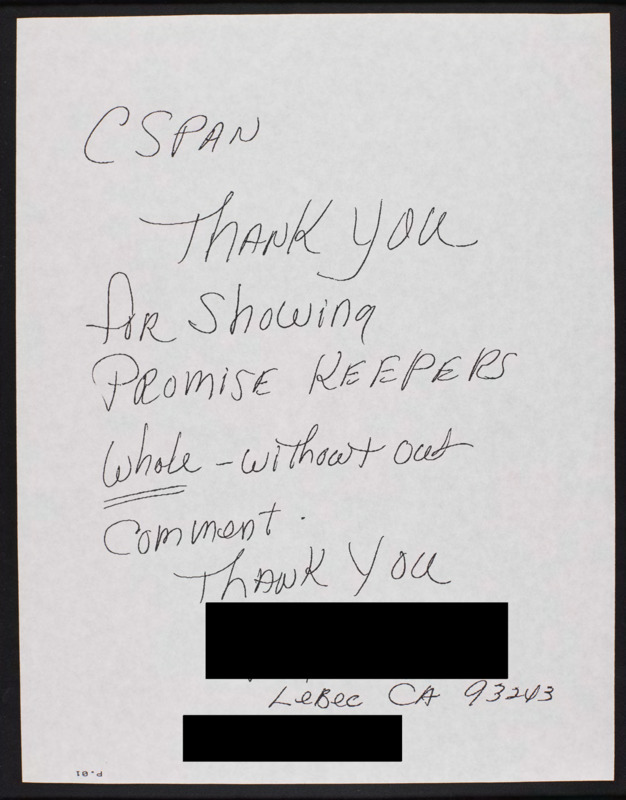 CSPAN
THANK YOU
for Showing
PROMISE KEEPERS
Whole - without out
Comment.
THANK YOU
LeBec CA 93243
P.01